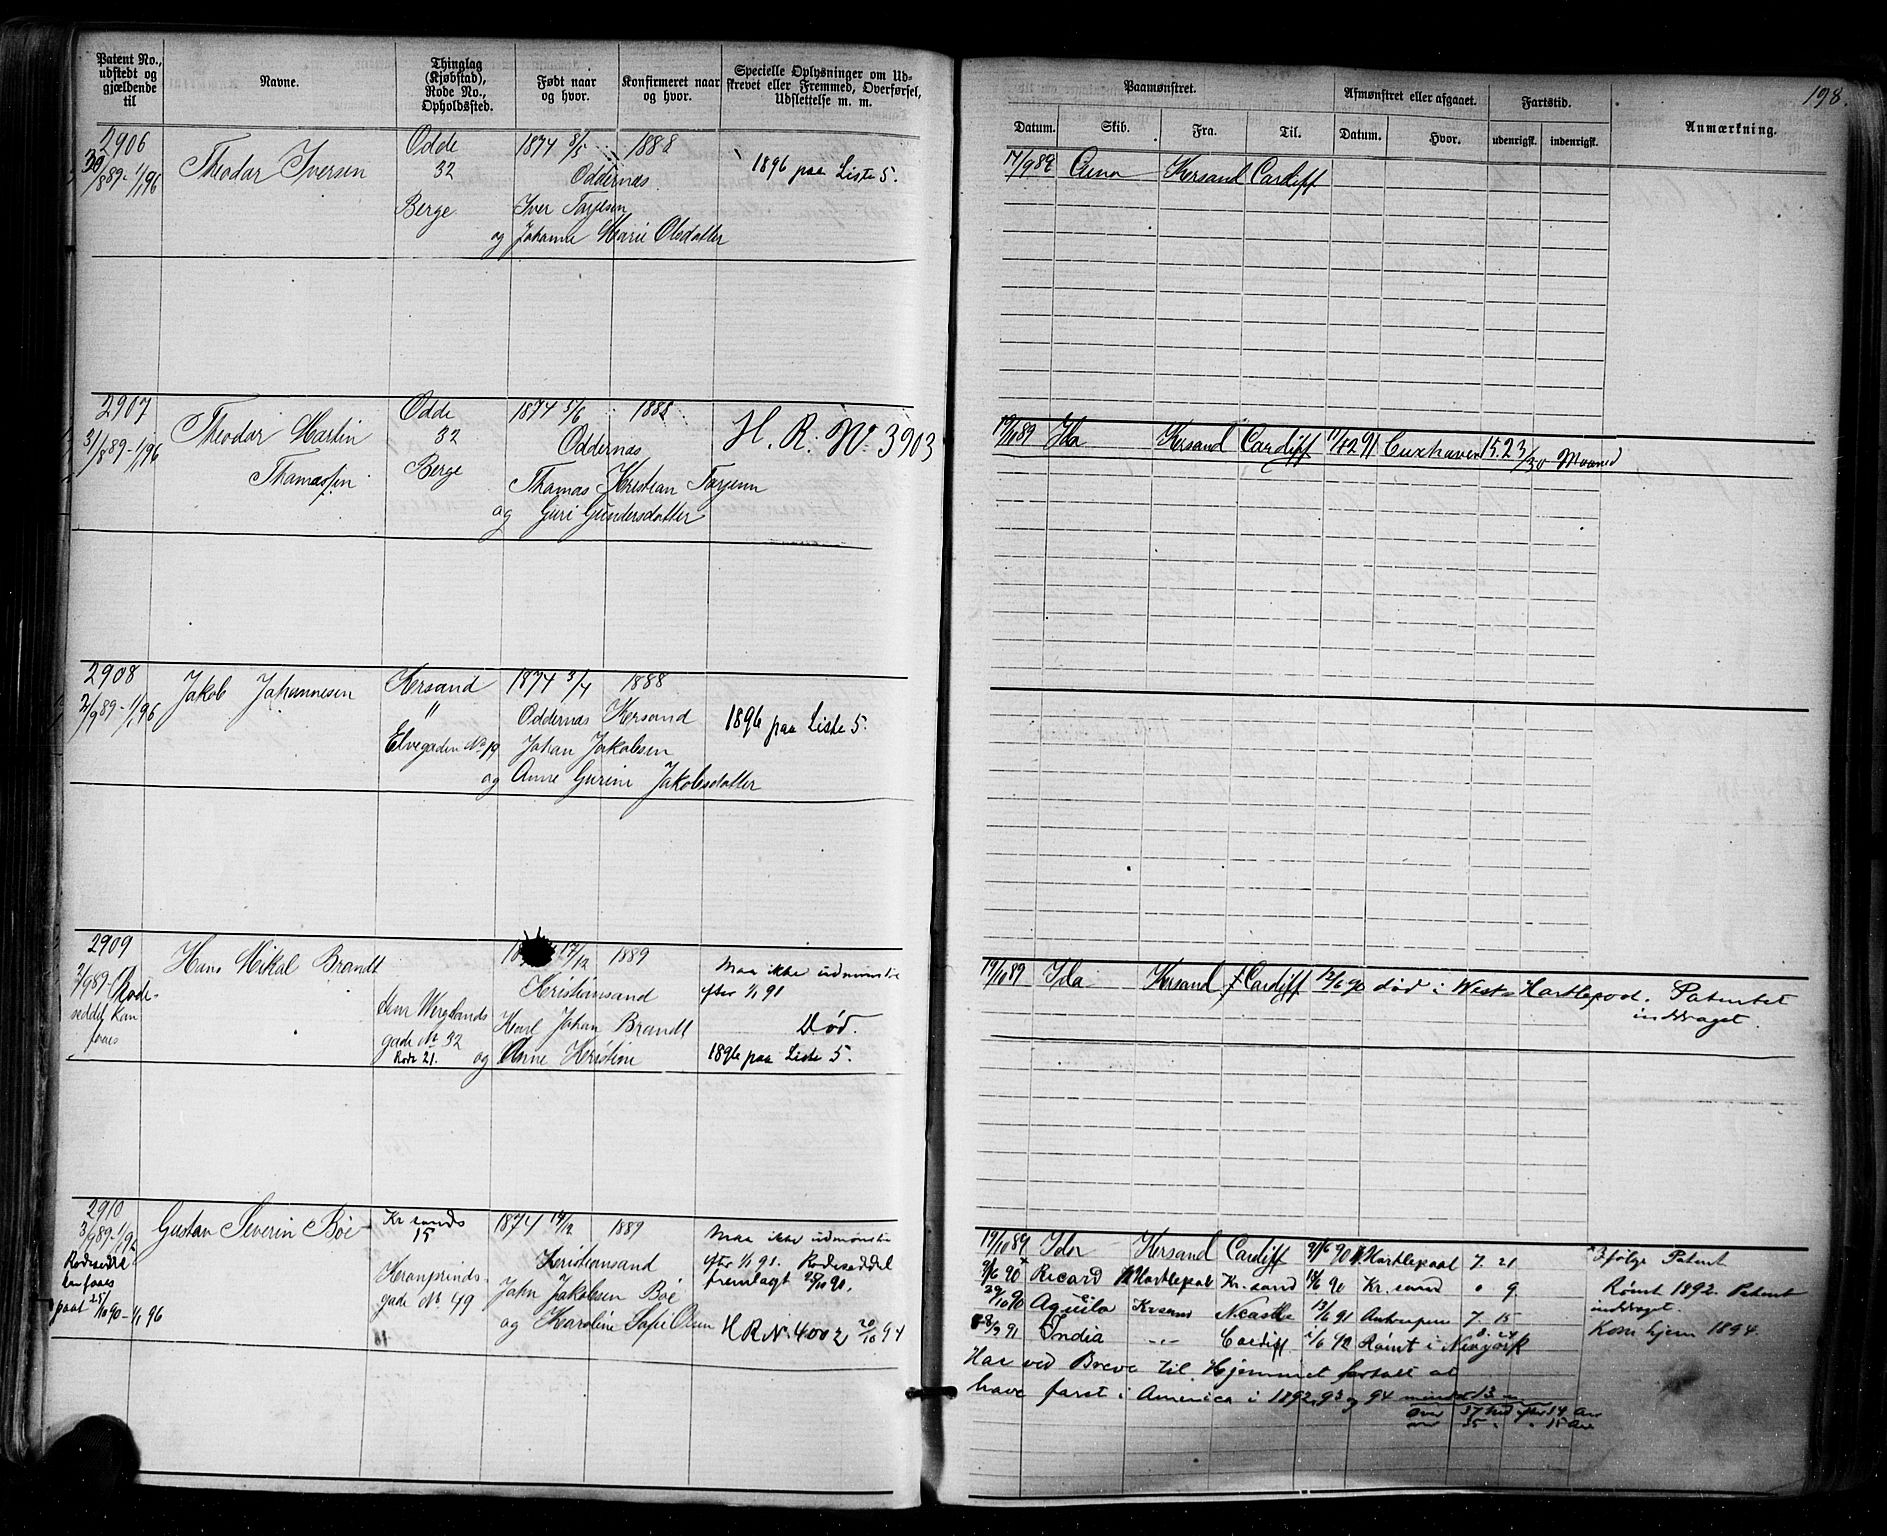 198.
Patent No., udstedt og gjældende til
Navne.
Thinglag (Kjøbstad), Rode No., Opholdssted.
Født naar og hvor.
Konfirmeret naar og hvor.
Specielle Oplysninger om Udskrevet eller Fremmed, Overførsel, Udslettelse m. m.
Paamønstret.
Afmønstret eller afgaaet.
Fartstid.
Anmærkning.
Datum.
Skib.
Fra.
Til.
Datum.
Hvor.
udenrigsk.
indenrigsk.
2906
30/8 89 - 1/1 96
Theodor Iversen
Odde
32
Berge
1874 8/5
1888
Oddernæs
Iver Torjesen
og Johanne Marie Olsdatter
1896 paa Liste 5.
17/9 89 Kersand Cardiff
2907
31/8 89 - 1/1 96
Theodor Martin
Thomassen
Odde
32
Berge
1874 5/6
1888
Oddernæs
Thomas Kristian Torjesen
og Guri Gundersdatter
H. R. No. 3903
19/10 89 Ida Kersand Cardiff 17/2 91 Cuxhaven 15.23/30 Maaned
2908
2/9 89 - 1/1 96
Jakob Johannesen
Kersand
"
Elvegaden No. 19
1874 3/4
1888
Oddernæs Kersand
Johan Jakobsen
og Anne Gurine Jakobsdatter
1896 paa Liste 5.
2909
2/9 89 - Rode-
seddel kun
foraes
Hans Mikal Brandt
Hen. Wergelands
gade No. 32
Rode 21.
17/12
1889
Kristiansand
Karl Johan Brandt
og Anne Kristine
Maa ikke udmønstre
efter 1/1 91
Død.
1896 paa Liste 5.
19/10 89 Ida Kersand Cardiff 12/6 90 død i West Hartlepool. Patentet
inddraget.
2910
3/9 89 - 1/1 92
Rodeseddel
kun foraes
paat 25/10 90 - 1/1 96
Gustav Severin Bøe
Kr sands
15
Kronprinds-
gade No. 49
1874 14/12
1889
Kristiansand
John Jakobsen Bøe
og Karoline Sofie Olsen
Maa ikke udmønstre
efter 1/1 91. Rodeseddel
fremlagt 25/10 90.
H R No. 4002 20/10 94
19/10 89 Ida Kersand Cardiff 9/6 90 W Hartlepool 7. 21
ifølge Patent
9/6 90 Ricard W Hartlepool Kr. sand 18/6 90 Kr. sand 0 9.
Rømt 1892. Patent
inddraget.
29/10 90 Aquila Krsand NCastle 13/6 91 Antwerpen 7. 15
Kom hjem 1894
8/9 91 India -"- Cardiff 1/6 92 Rømt i Newyork 8. 24
Har ved Breve til Hjemmet fortalt at
have farst i America i 1892, 93 og 94 mindst 13 m
over 37 Md efter 14 Aar
over 35 " " 15 Aar